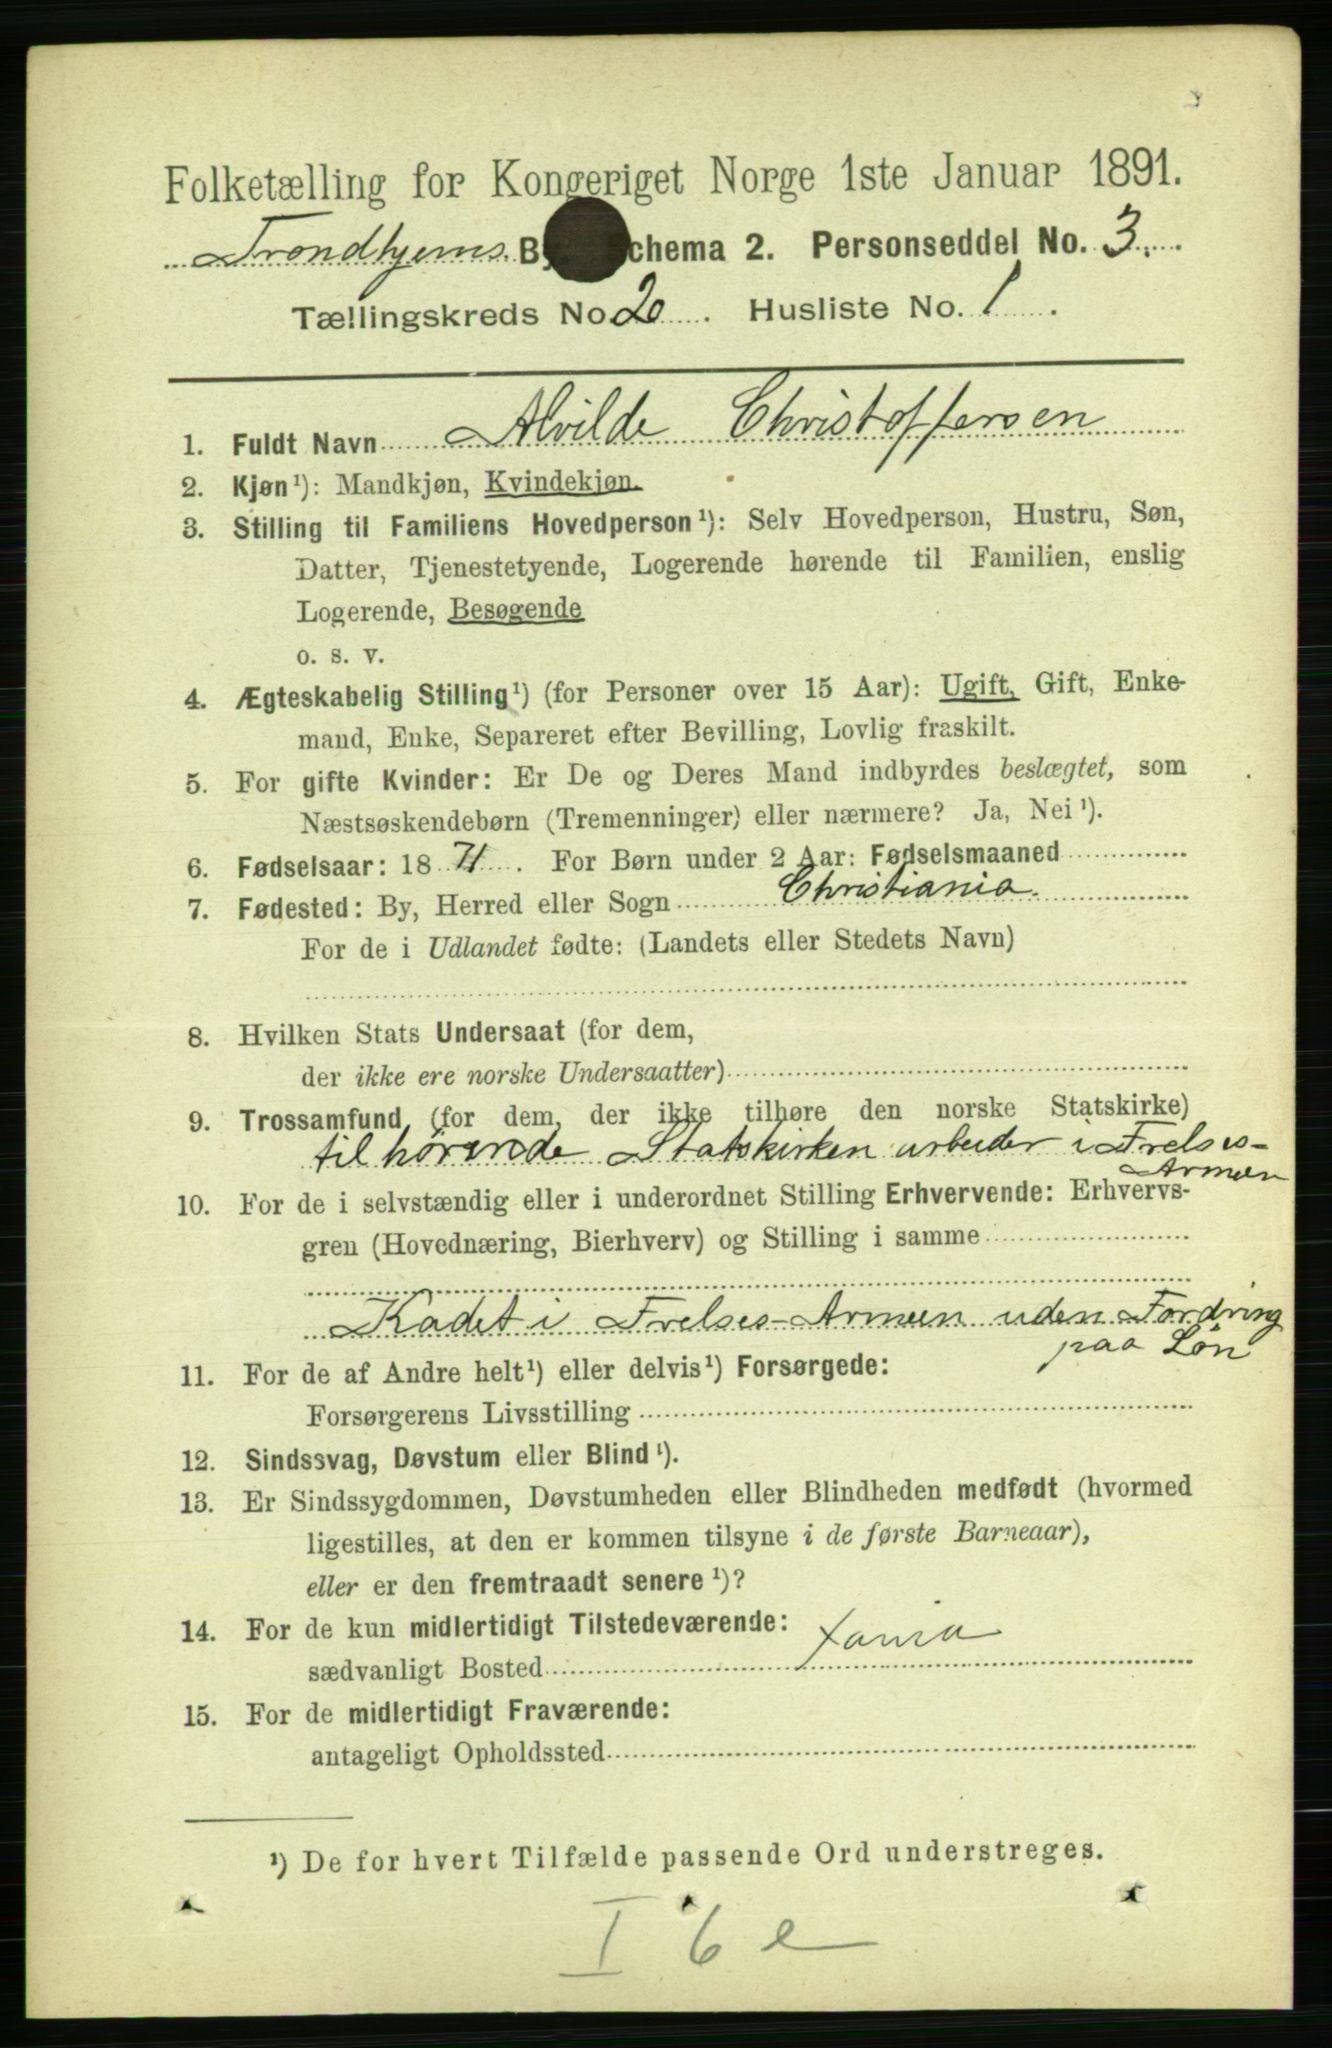 Folketælling for Kongeriget Norge 1ste Januar 1891.
Trondhjems By. Schema 2. Personseddel No. 3.
Tællingskreds No. 20. Husliste No. 1.
1. Fuldt Navn Alvilde Christoffersen
2. Kjøn¹): Mandkjøn, Kvindekjøn.
3. Stilling til Familiens Hovedperson¹): Selv Hovedperson, Hustru, Søn,
Datter, Tjenestetyende, Logerende hørende til Familien, enslig
Logerende, Besøgende
o. s. v.
4. Ægteskabelig Stilling¹) (for Personer over 15 Aar): Ugift, Gift, Enke-
mand, Enke, Separeret efter Bevilling, Lovlig fraskilt.
5. For gifte Kvinder: Er De og Deres Mand indbyrdes beslægtet, som
Næstsøskendebørn (Tremenninger) eller nærmere? Ja, Nei¹).
6. Fødselsaar: 1871. For Børn under 2 Aar: Fødselsmaaned
7. Fødested: By, Herred eller Sogn Christiania.
For de i Udlandet fødte: (Landets eller Stedets Navn)
8. Hvilken Stats Undersaat (for dem,
der ikke ere norske Undersaatter)
9. Trossamfund (for dem, der ikke tilhøre den norske Statskirke)
tilhørende Statskirken arbeider i Frelses-
Armeen
10. For de i selvstændig eller i underordnet Stilling Erhvervende: Erhvervs-
gren (Hovednæring, Bierhverv) og Stilling i samme
Kadet i Frelses-Armeen uden Fordring
paa Løn
11. For de af Andre helt¹) eller delvis¹) Forsørgede:
Forsørgerens Livsstilling
12. Sindssvag, Døvstum eller Blind¹).
13. Er Sindssygdommen, Døvstumheden eller Blindheden medfødt (hvormed
ligestilles, at den er kommen tilsyne i de første Barneaar),
eller er den fremtraadt senere¹)?
14. For de kun midlertidigt Tilstedeværende:
sædvanligt Bosted xania
15. For de midlertidigt Fraværende:
antageligt Opholdssted
¹) De for hvert Tilfælde passende Ord understreges.
I 6 e